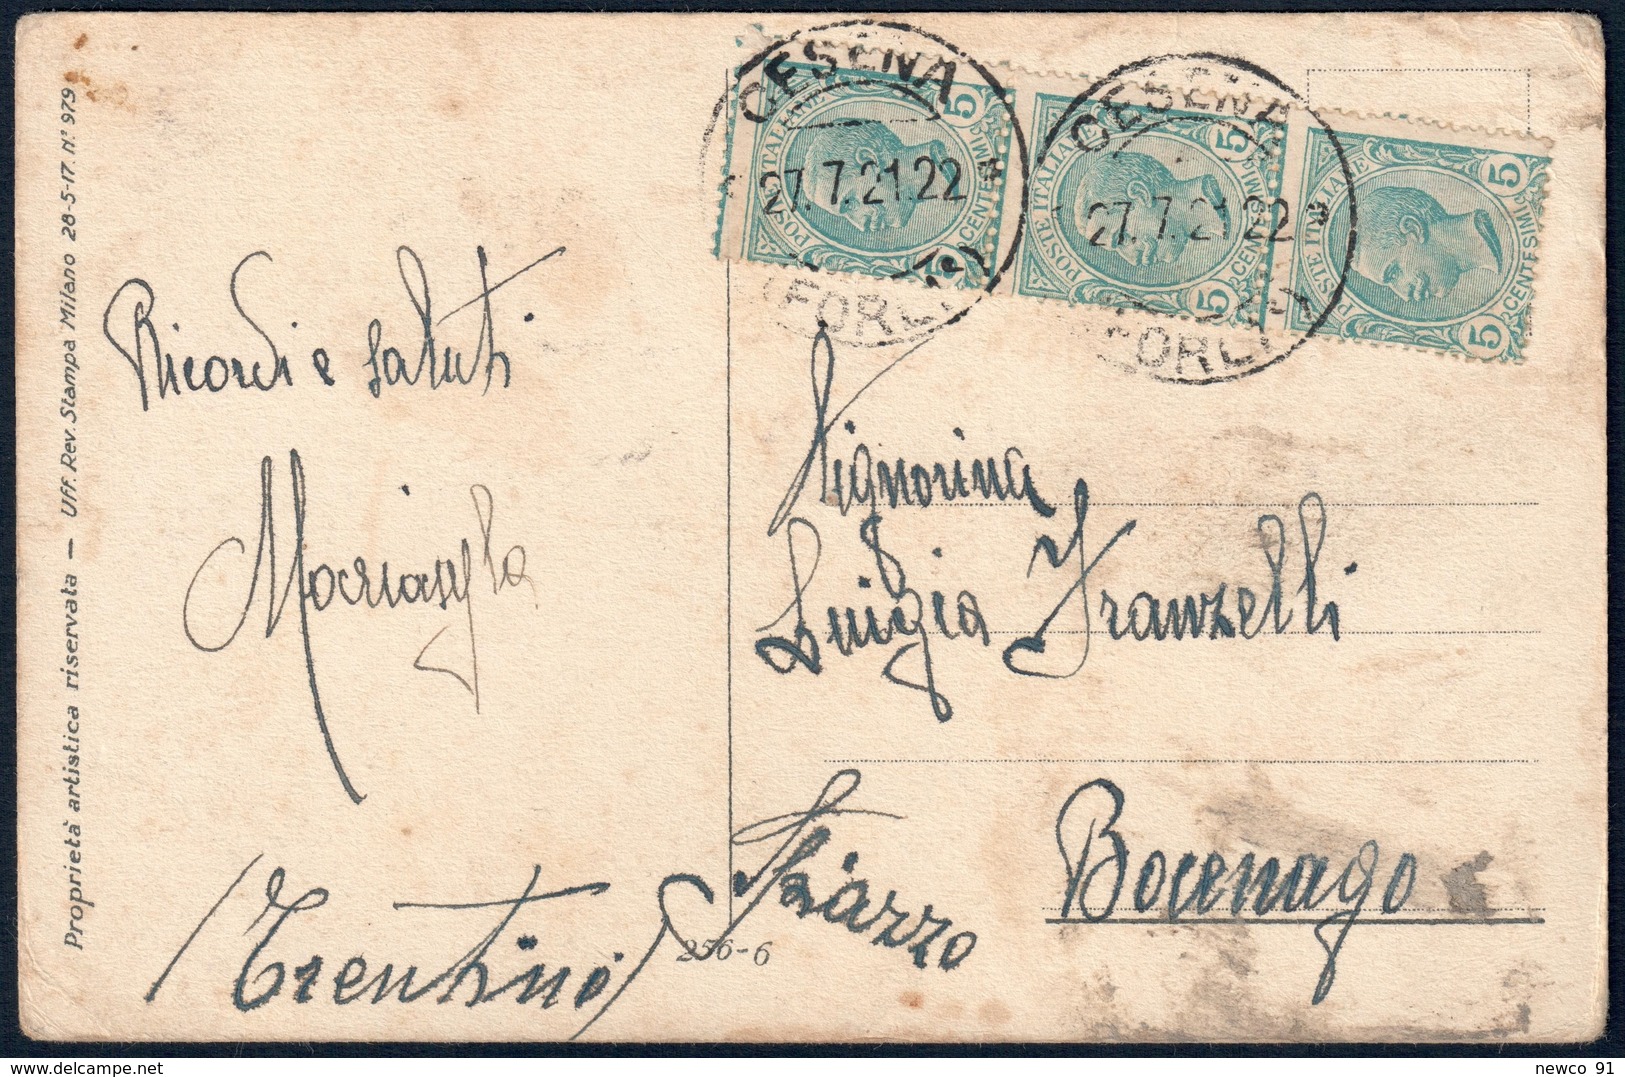 Proprietà artistica riservata — Uff. Rev. Stampa Milano 28-5-17. N.° 979
CESENA
27.7.21.22
(FORLI)
CESENA
27.7.21.22
(FORLI)
POSTE ITALIANE
5 CENTESIMI 5
POSTE ITALIANE
5 CENTESIMI 5
POSTE ITALIANE
5 CENTESIMI 5
Ricordi e saluti
Signorina
Luigia Franzelli
Bocenago
(Trentino)
256-6
newco 91